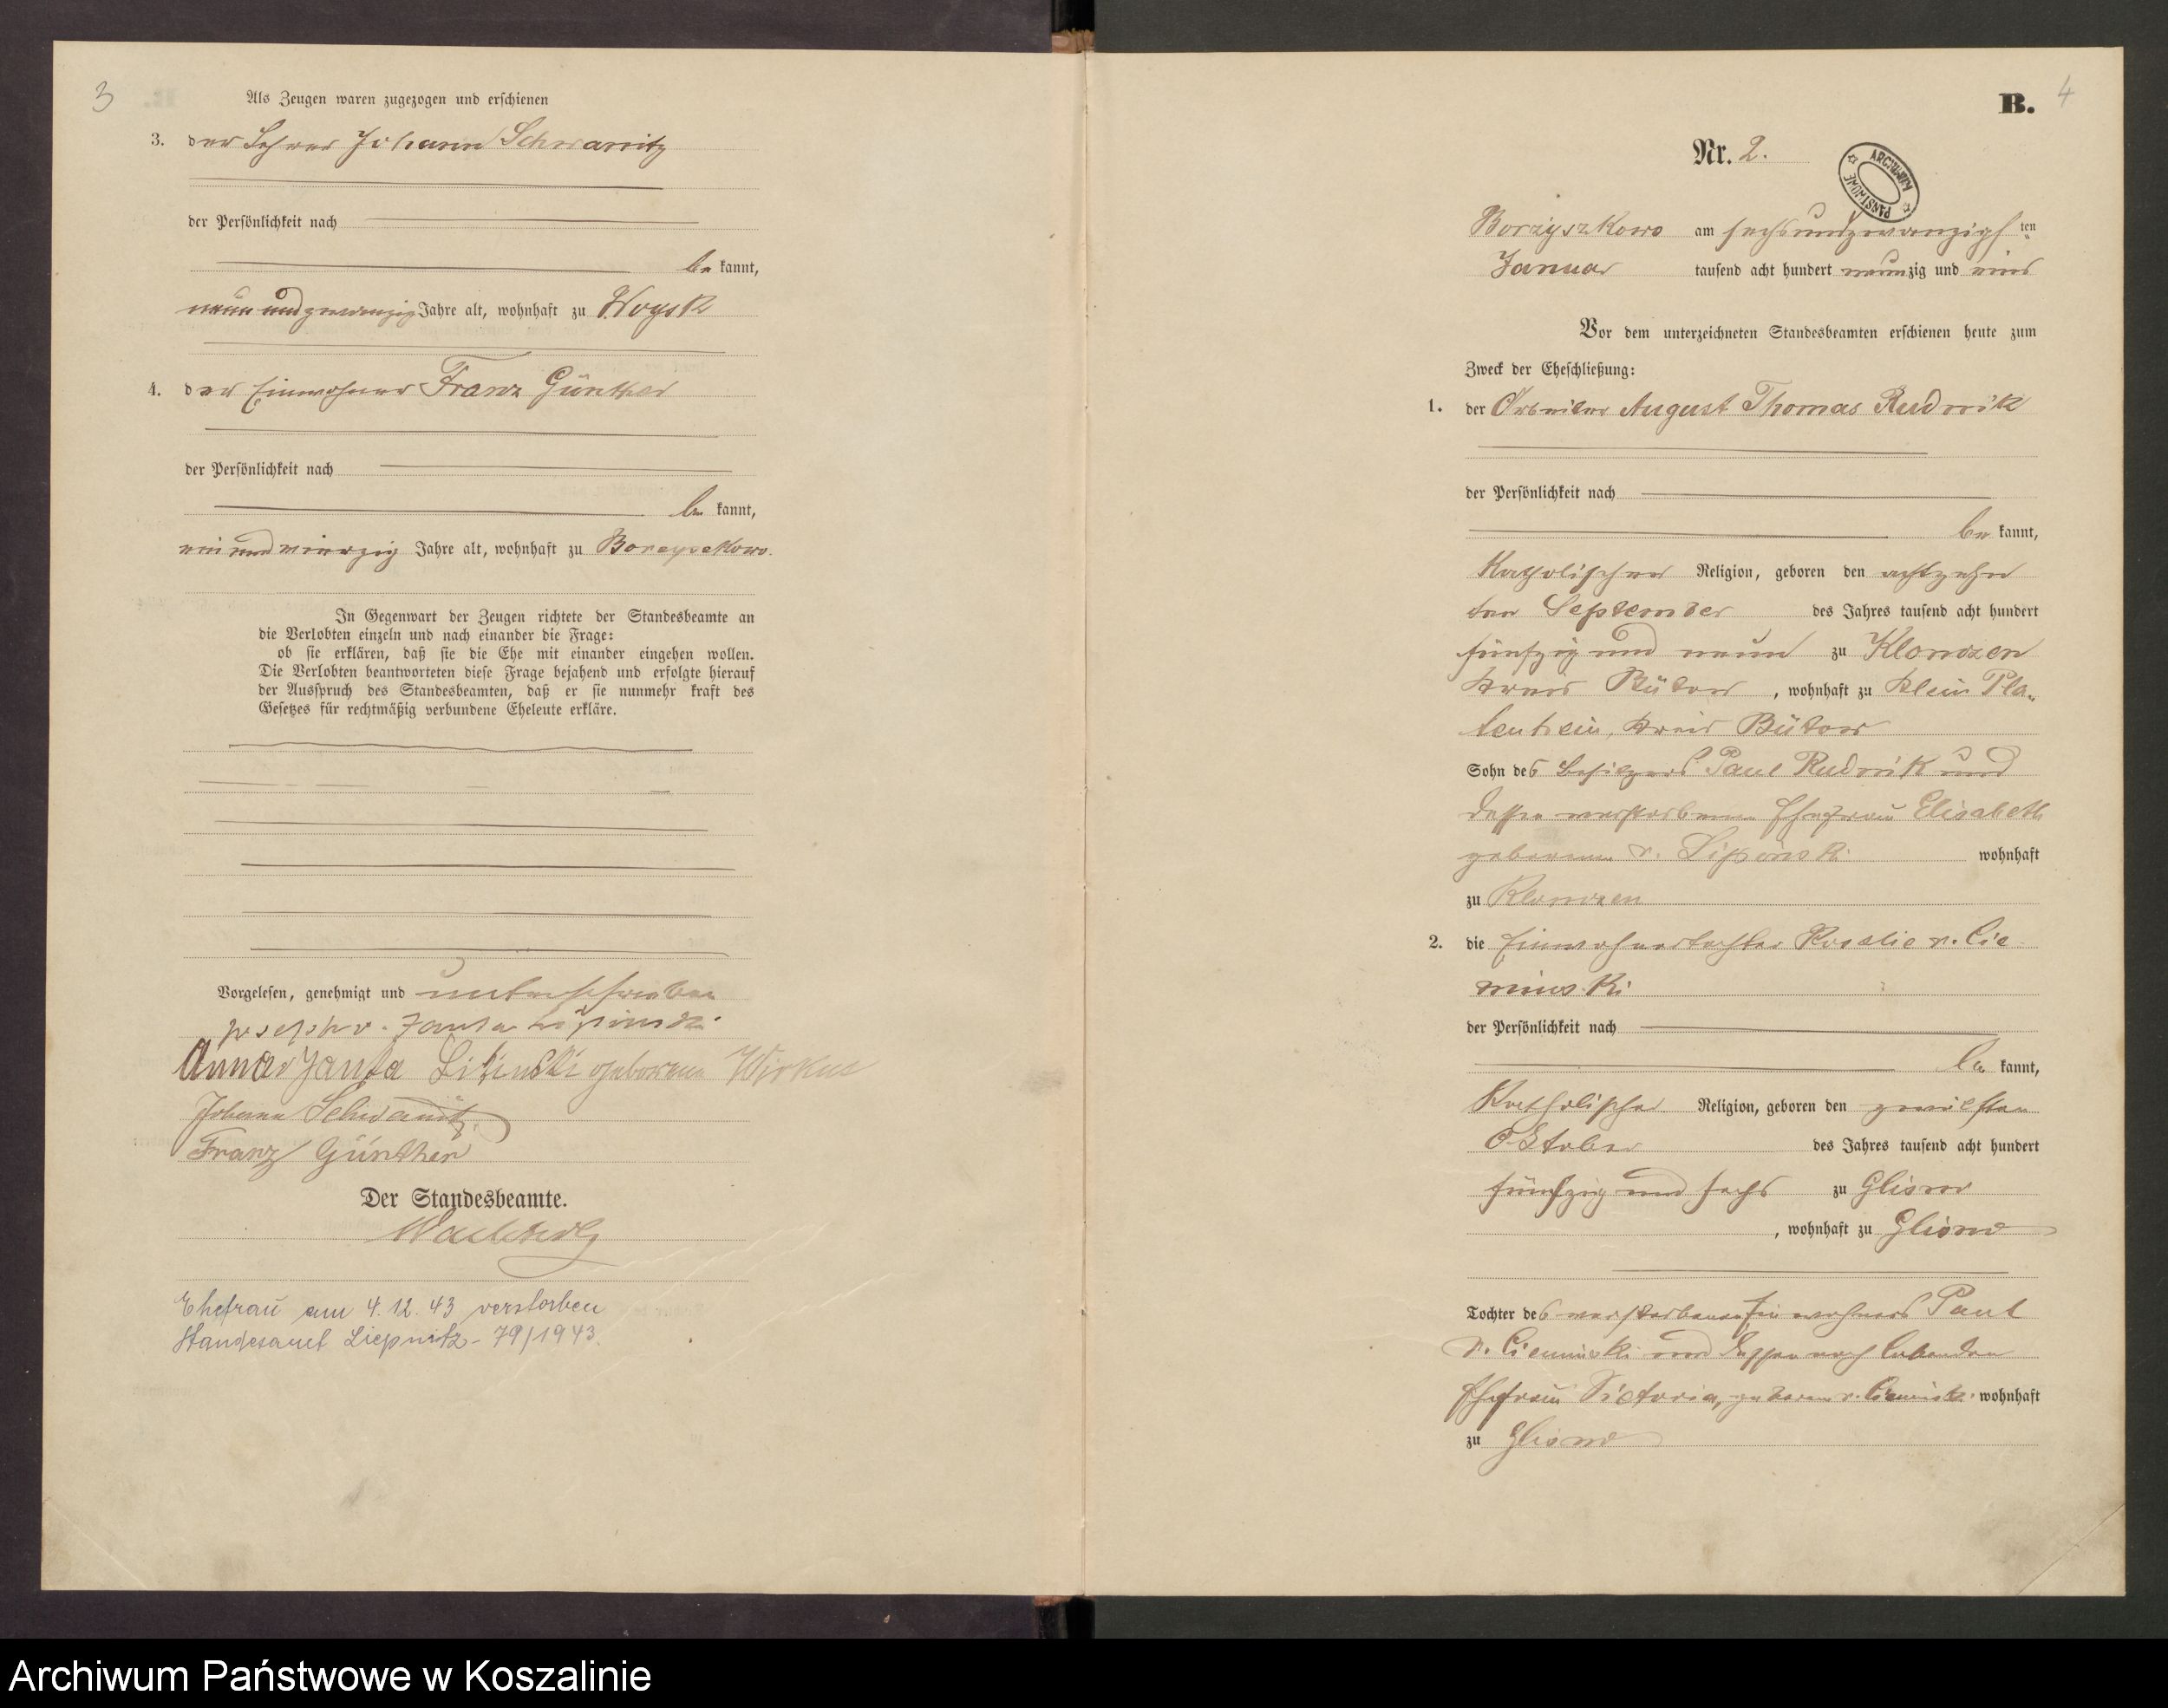 3
Als Zeugen waren zugezogen und erschienen
3. der Lehrer Johann Schwanitz
der Persönlichkeit nach
be kannt,
neun und zwanzig Jahre alt, wohnhaft zu Woysk
4. der Einwohner Franz Günther
der Persönlichkeit nach
be kannt,
ein und vierzig Jahre alt, wohnhaft zu Borzyszkowo.
In Gegenwart der Zeugen richtete der Standesbeamte an
die Verlobten einzeln und nach einander die Frage:
ob sie erklären, daß sie die Ehe mit einander eingehen wollen.
Die Verlobten beantworteten diese Frage bejahend und erfolgte hierauf
der Ausspruch des Standesbeamten, daß er sie nunmehr kraft des
Gesetzes für rechtmäßig verbundene Eheleute erkläre.
Vorgelesen, genehmigt und unterschrieben
Joseph v. Janta Lipinski
Anna v Janta Lipinski geborene Wirkus
Johann Schwanitz
Franz Günther
Der Standesbeamte.
Ehefrau am 4.12.43 verstorben
Standesamt Liepnitz - 79/1943.
B. 4
Nr. 2.
ARCHIWUM PAŃSTWOWE
Borzyszkowo am sechsundzwanzigsten
Januar tausend acht hundert neunzig und eins
Vor dem unterzeichneten Standesbeamten erschienen heute zum
Zweck der Eheschließung:
1. der Arbeiter August Thomas Rudnik
der Persönlichkeit nach
be kannt,
Katholischer Religion, geboren den achtzehn
ten September des Jahres tausend acht hundert
fünfzig und neun zu Klonczen
Kreis Bütow, wohnhaft zu Klein Pla-
tenhein, Kreis Bütow
Sohn des Besitzers Paul Rudnik und
dessen verstorbenen Ehefrau Elisabeth
geborenen v. Lipinski wohnhaft
zu Klonczen
2. die Einwohnertochter Rosalie v. Cie
minski
der Persönlichkeit nach
be kannt,
Katholischer Religion, geboren den zwölften
Oktober des Jahres tausend acht hundert
fünfzig und sechs zu Glisno
, wohnhaft zu Glisno
Tochter des verstorbenen Einwohners Paul
v. Cieminski und dessen noch lebenden
Ehefrau Victoria, geborene v. Cieminski wohnhaft
zu Glisno
Archiwum Państwowe w Koszalinie